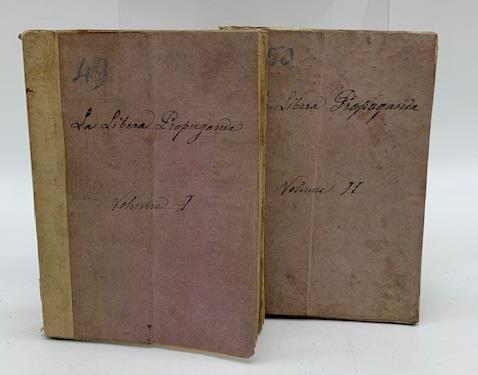 49
La Libera Propaganda
Volume I
50
La Libera Propaganda
Volume II